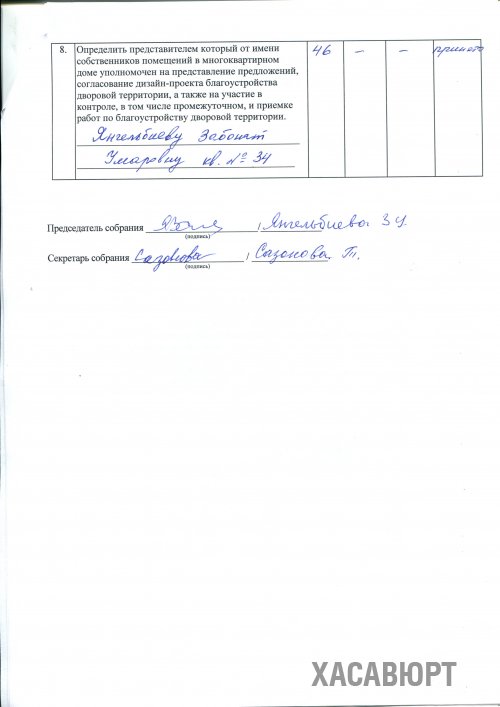 8. Определить представителем который от имени 46 – – принято
собственников помещений в многоквартирном
доме уполномочен на представление предложений,
согласование дизайн-проекта благоустройства
дворовой территории, а также на участие в
контроле, в том числе промежуточном, и приемке
работ по благоустройству дворовой территории.
Янгельбиеву Забонят
Умаровну кв. № 34
Председатель собрания / Янгельбиева З У.
(подпись)
Секретарь собрания Сазонова / Сазонова. Т.
(подпись)
ХАСАВЮРТ